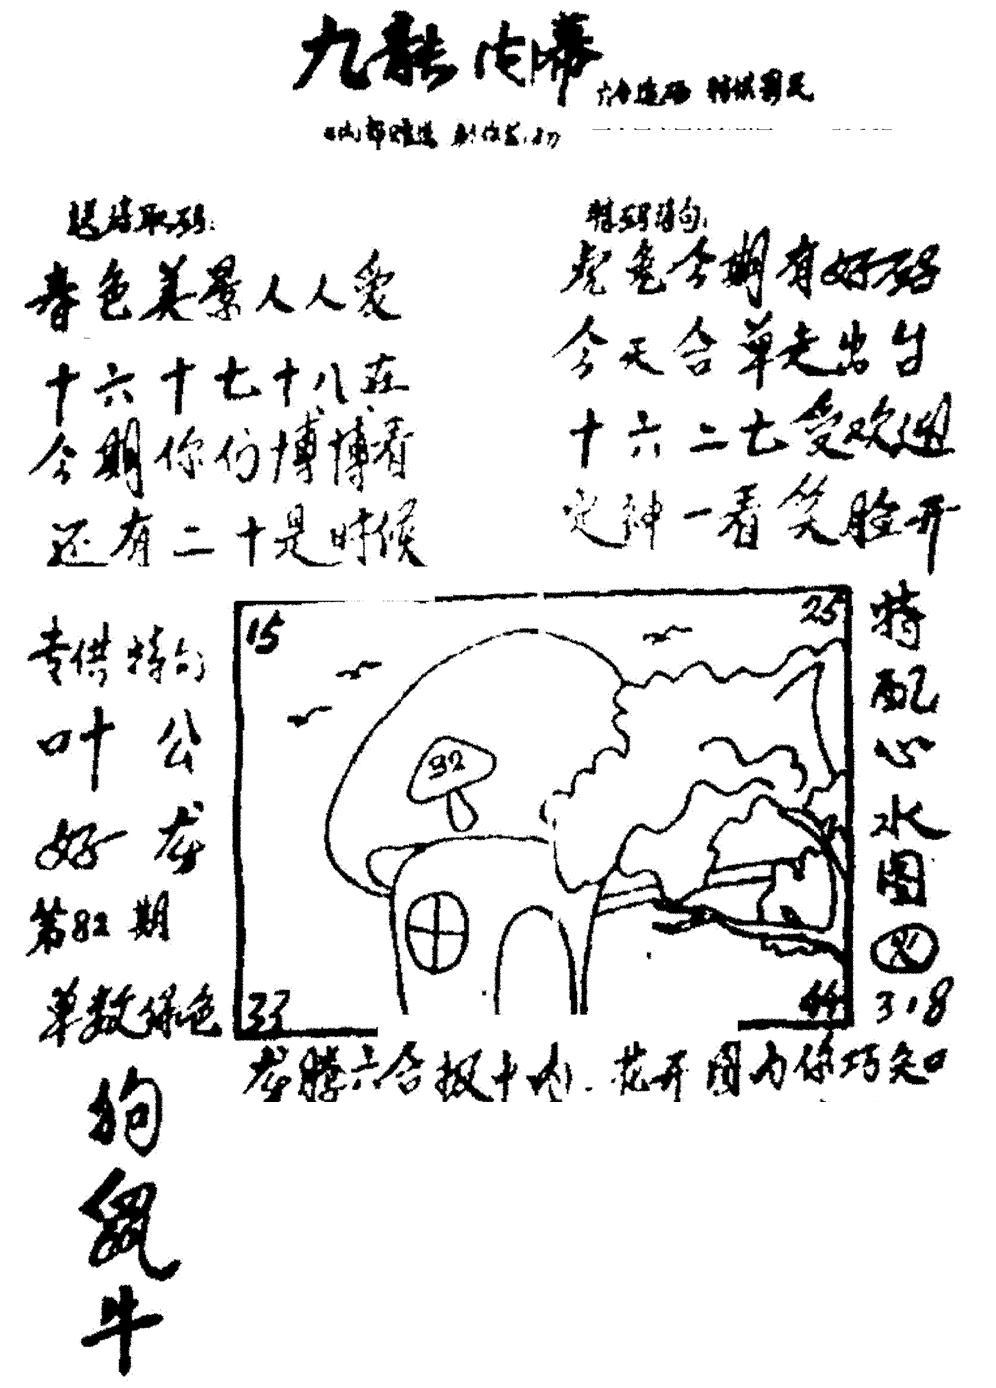 九龍内幕
六合造码 特供彩民
内部赠送 翻印必究
送特取码:
春色美景人人爱
十六十七十八在
今期你们博博看
还有二十是时候
特码诗句:
虎兔今期有好码
今天合单走出台
十六二七受欢迎
定神一看笑脸开
专供特句
叶公
好龙
第82期
单数绿色
狗
鼠
牛
15
25
32
33
44
特配心水图
3.8
龙腾六合报十内. 花开图为你巧知